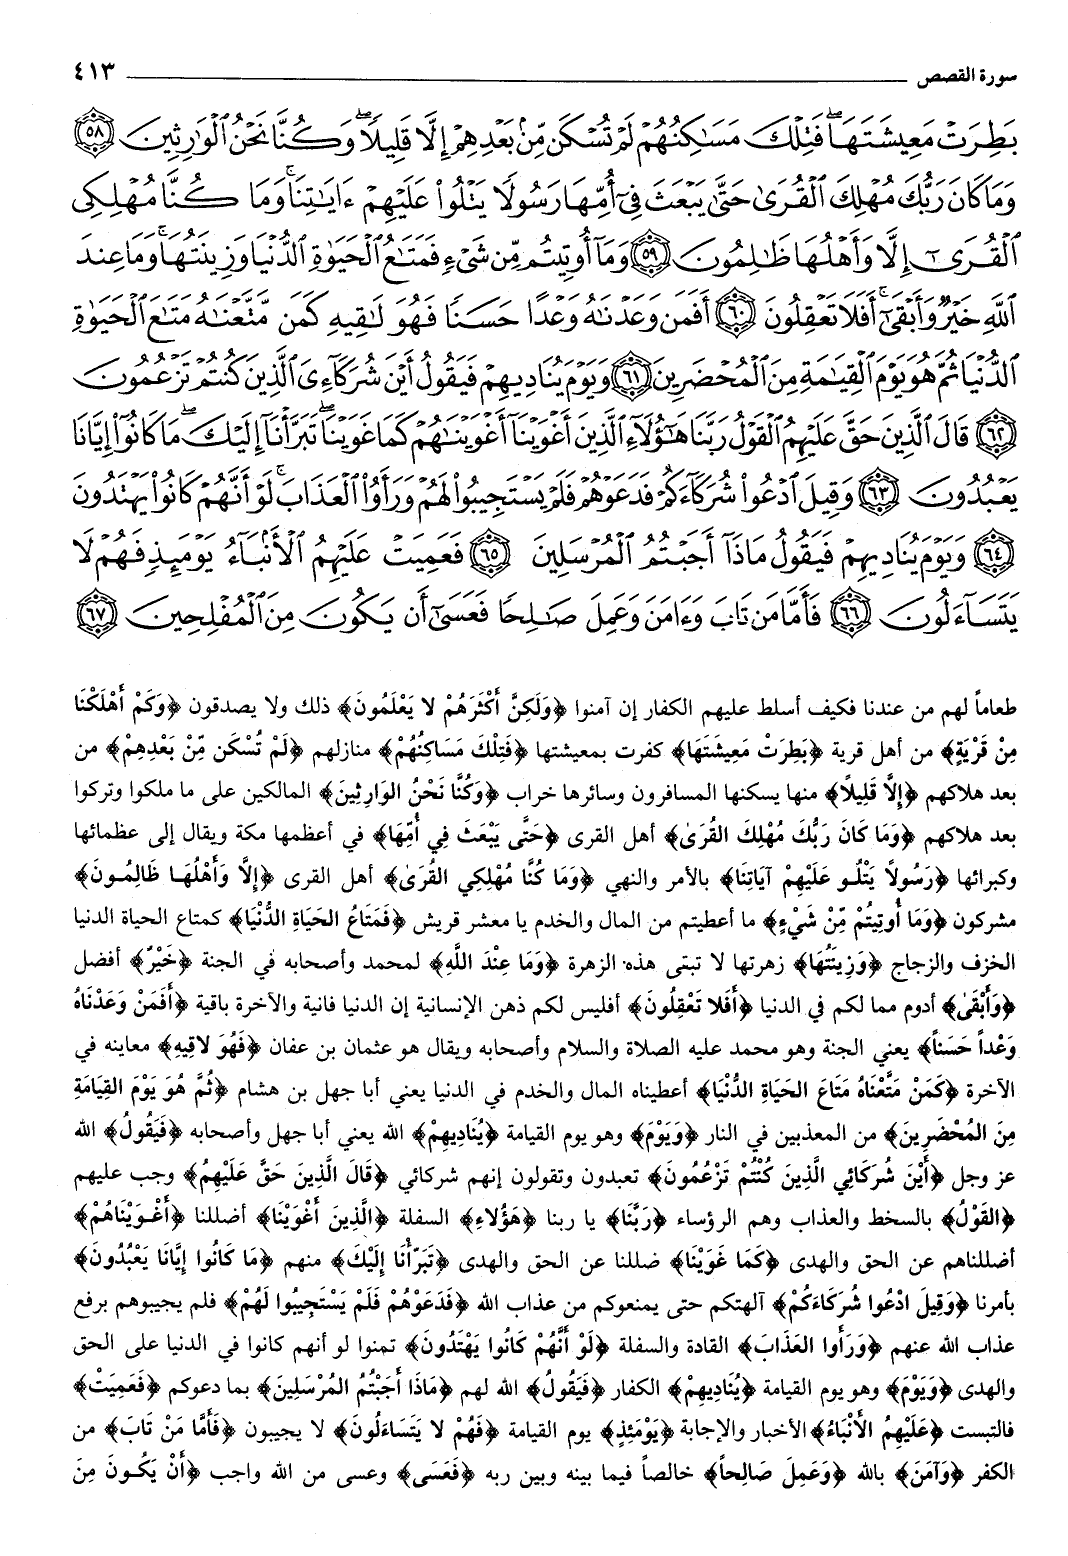 سورة القصص ٤١٣
بَطِرَتْ مَعِيشَتَهَا ۖ فَتِلْكَ مَسَٰكِنُهُمْ لَمْ تُسْكَن مِّنۢ بَعْدِهِمْ إِلَّا قَلِيلًا ۖ وَكُنَّا نَحْنُ ٱلْوَٰرِثِينَ ﴿٥٨﴾
وَمَا كَانَ رَبُّكَ مُهْلِكَ ٱلْقُرَىٰ حَتَّىٰ يَبْعَثَ فِىٓ أُمِّهَا رَسُولًا يَتْلُوا۟ عَلَيْهِمْ ءَايَٰتِنَا ۚ وَمَا كُنَّا مُهْلِكِى
ٱلْقُرَىٰٓ إِلَّا وَأَهْلُهَا ظَٰلِمُونَ ﴿٥٩﴾ وَمَآ أُوتِيتُم مِّن شَىْءٍ فَمَتَٰعُ ٱلْحَيَوٰةِ ٱلدُّنْيَا وَزِينَتُهَا ۚ وَمَا عِندَ
ٱللَّهِ خَيْرٌ وَأَبْقَىٰٓ ۚ أَفَلَا تَعْقِلُونَ ﴿٦٠﴾ أَفَمَن وَعَدْنَٰهُ وَعْدًا حَسَنًا فَهُوَ لَٰقِيهِ كَمَن مَّتَّعْنَٰهُ مَتَٰعَ ٱلْحَيَوٰةِ
ٱلدُّنْيَا ثُمَّ هُوَ يَوْمَ ٱلْقِيَٰمَةِ مِنَ ٱلْمُحْضَرِينَ ﴿٦١﴾ وَيَوْمَ يُنَادِيهِمْ فَيَقُولُ أَيْنَ شُرَكَآءِىَ ٱلَّذِينَ كُنتُمْ تَزْعُمُونَ
﴿٦٢﴾ قَالَ ٱلَّذِينَ حَقَّ عَلَيْهِمُ ٱلْقَوْلُ رَبَّنَا هَٰٓؤُلَآءِ ٱلَّذِينَ أَغْوَيْنَآ أَغْوَيْنَٰهُمْ كَمَا غَوَيْنَا ۖ تَبَرَّأْنَآ إِلَيْكَ ۖ مَا كَانُوٓا۟ إِيَّانَا
يَعْبُدُونَ ﴿٦٣﴾ وَقِيلَ ٱدْعُوا۟ شُرَكَآءَكُمْ فَدَعَوْهُمْ فَلَمْ يَسْتَجِيبُوا۟ لَهُمْ وَرَأَوُا۟ ٱلْعَذَابَ ۚ لَوْ أَنَّهُمْ كَانُوا۟ يَهْتَدُونَ
﴿٦٤﴾ وَيَوْمَ يُنَادِيهِمْ فَيَقُولُ مَاذَآ أَجَبْتُمُ ٱلْمُرْسَلِينَ ﴿٦٥﴾ فَعَمِيَتْ عَلَيْهِمُ ٱلْأَنۢبَآءُ يَوْمَئِذٍ فَهُمْ لَا
يَتَسَآءَلُونَ ﴿٦٦﴾ فَأَمَّا مَن تَابَ وَءَامَنَ وَعَمِلَ صَٰلِحًا فَعَسَىٰٓ أَن يَكُونَ مِنَ ٱلْمُفْلِحِينَ ﴿٦٧﴾
طعاماً لهم من عندنا فكيف أسلط عليهم الكفار إن آمنوا ﴿وَلَكِنَّ أَكْثَرَهُمْ لا يَعْلَمُونَ﴾ ذلك ولا يصدقون ﴿وَكَمْ أَهْلَكْنَا
مِنْ قَرْيَةٍ﴾ من أهل قرية ﴿بَطِرَتْ مَعِيشَتَهَا﴾ كفرت بمعيشتها ﴿فَتِلْكَ مَسَاكِنُهُمْ﴾ منازلهم ﴿لَمْ تُسْكَن مِّنْ بَعْدِهِمْ﴾ من
بعد هلاكهم ﴿إِلَّا قَلِيلاً﴾ منها يسكنها المسافرون وسائرها خراب ﴿وَكُنَّا نَحْنُ الوَارِثِينَ﴾ المالكين على ما ملكوا وتركوا
بعد هلاكهم ﴿وَمَا كَانَ رَبُّكَ مُهْلِكَ القُرَىٰ﴾ أهل القرى ﴿حَتَّى يَبْعَثَ فِي أُمِّهَا﴾ في أعظمها مكة ويقال إلى عظمائها
وكبرائها ﴿رَسُولاً يَتْلُو عَلَيْهِمْ آيَاتِنَا﴾ بالأمر والنهي ﴿وَمَا كُنَّا مُهْلِكِي القُرَىٰ﴾ أهل القرى ﴿إِلَّا وَأَهْلُهَا ظَالِمُونَ﴾
مشركون ﴿وَمَا أُوتِيتُمْ مِّنْ شَيْءٍ﴾ ما أعطيتم من المال والخدم يا معشر قريش ﴿فَمَتَاعُ الحَيَاةِ الدُّنْيَا﴾ كمتاع الحياة الدنيا
الخزف والزجاج ﴿وَزِينَتُهَا﴾ زهرتها لا تبتى هذه الزهرة ﴿وَمَا عِنْدَ اللَّهِ﴾ لمحمد وأصحابه في الجنة ﴿خَيْرٌ﴾ أفضل
﴿وَأَبْقَىٰ﴾ أدوم مما لكم في الدنيا ﴿أَفَلا تَعْقِلُونَ﴾ أفليس لكم ذهن الإنسانية إن الدنيا فانية والآخرة باقية ﴿أَفَمَنْ وَعَدْنَاهُ
وَعْداً حَسَناً﴾ يعني الجنة وهو محمد عليه الصلاة والسلام وأصحابه ويقال هو عثمان بن عفان ﴿فَهُوَ لاقِيهِ﴾ معاينه في
الآخرة ﴿كَمَنْ مَتَّعْنَاهُ مَتَاعَ الحَيَاةِ الدُّنْيَا﴾ أعطيناه المال والخدم في الدنيا يعني أبا جهل بن هشام ﴿ثُمَّ هُوَ يَوْمَ القِيَامَةِ
مِنَ المُحْضَرِينَ﴾ من المعذبين في النار ﴿وَيَوْمَ﴾ وهو يوم القيامة ﴿يُنَادِيهِمْ﴾ الله يعني أبا جهل وأصحابه ﴿فَيَقُولُ﴾ الله
عز وجل ﴿أَيْنَ شُرَكَائِي الَّذِينَ كُنْتُمْ تَزْعُمُونَ﴾ تعبدون وتقولون إنهم شركائي ﴿قَالَ الَّذِينَ حَقَّ عَلَيْهِمُ﴾ وجب عليهم
﴿القَوْلُ﴾ بالسخط والعذاب وهم الرؤساء ﴿رَبَّنَا﴾ يا ربنا ﴿هَؤُلاءِ﴾ السفلة ﴿الَّذِينَ أَغْوَيْنَا﴾ أضللنا ﴿أَغْوَيْنَاهُمْ﴾
أضللناهم عن الحق والهدى ﴿كَمَا غَوَيْنَا﴾ ضللنا عن الحق والهدى ﴿تَبَرَّأْنَا إِلَيْكَ﴾ منهم ﴿مَا كَانُوا إِيَّانَا يَعْبُدُونَ﴾
بأمرنا ﴿وَقِيلَ ادْعُوا شُرَكَاءَكُمْ﴾ آلهتكم حتى يمنعوكم من عذاب الله ﴿فَدَعَوْهُمْ فَلَمْ يَسْتَجِيبُوا لَهُمْ﴾ فلم يجيبوهم برفع
عذاب الله عنهم ﴿وَرَأَوا العَذَابَ﴾ القادة والسفلة ﴿لَوْ أَنَّهُمْ كَانُوا يَهْتَدُونَ﴾ تمنوا لو أنهم كانوا في الدنيا على الحق
والهدى ﴿وَيَوْمَ﴾ وهو يوم القيامة ﴿يُنَادِيهِمْ﴾ الكفار ﴿فَيَقُولُ﴾ الله لهم ﴿مَاذَا أَجَبْتُمُ المُرْسَلِينَ﴾ بما دعوكم ﴿فَعَمِيَتْ﴾
فالتبست ﴿عَلَيْهِمُ الأَنْبَاءُ﴾ الأخبار والإجابة ﴿يَوْمَئِذٍ﴾ يوم القيامة ﴿فَهُمْ لا يَتَسَاءَلُونَ﴾ لا يجيبون ﴿فَأَمَّا مَنْ تَابَ﴾ من
الكفر ﴿وَآمَنَ﴾ بالله ﴿وَعَمِلَ صَالِحاً﴾ خالصاً فيما بينه وبين ربه ﴿فَعَسَى﴾ وعسى من الله واجب ﴿أَنْ يَكُونَ مِنَ